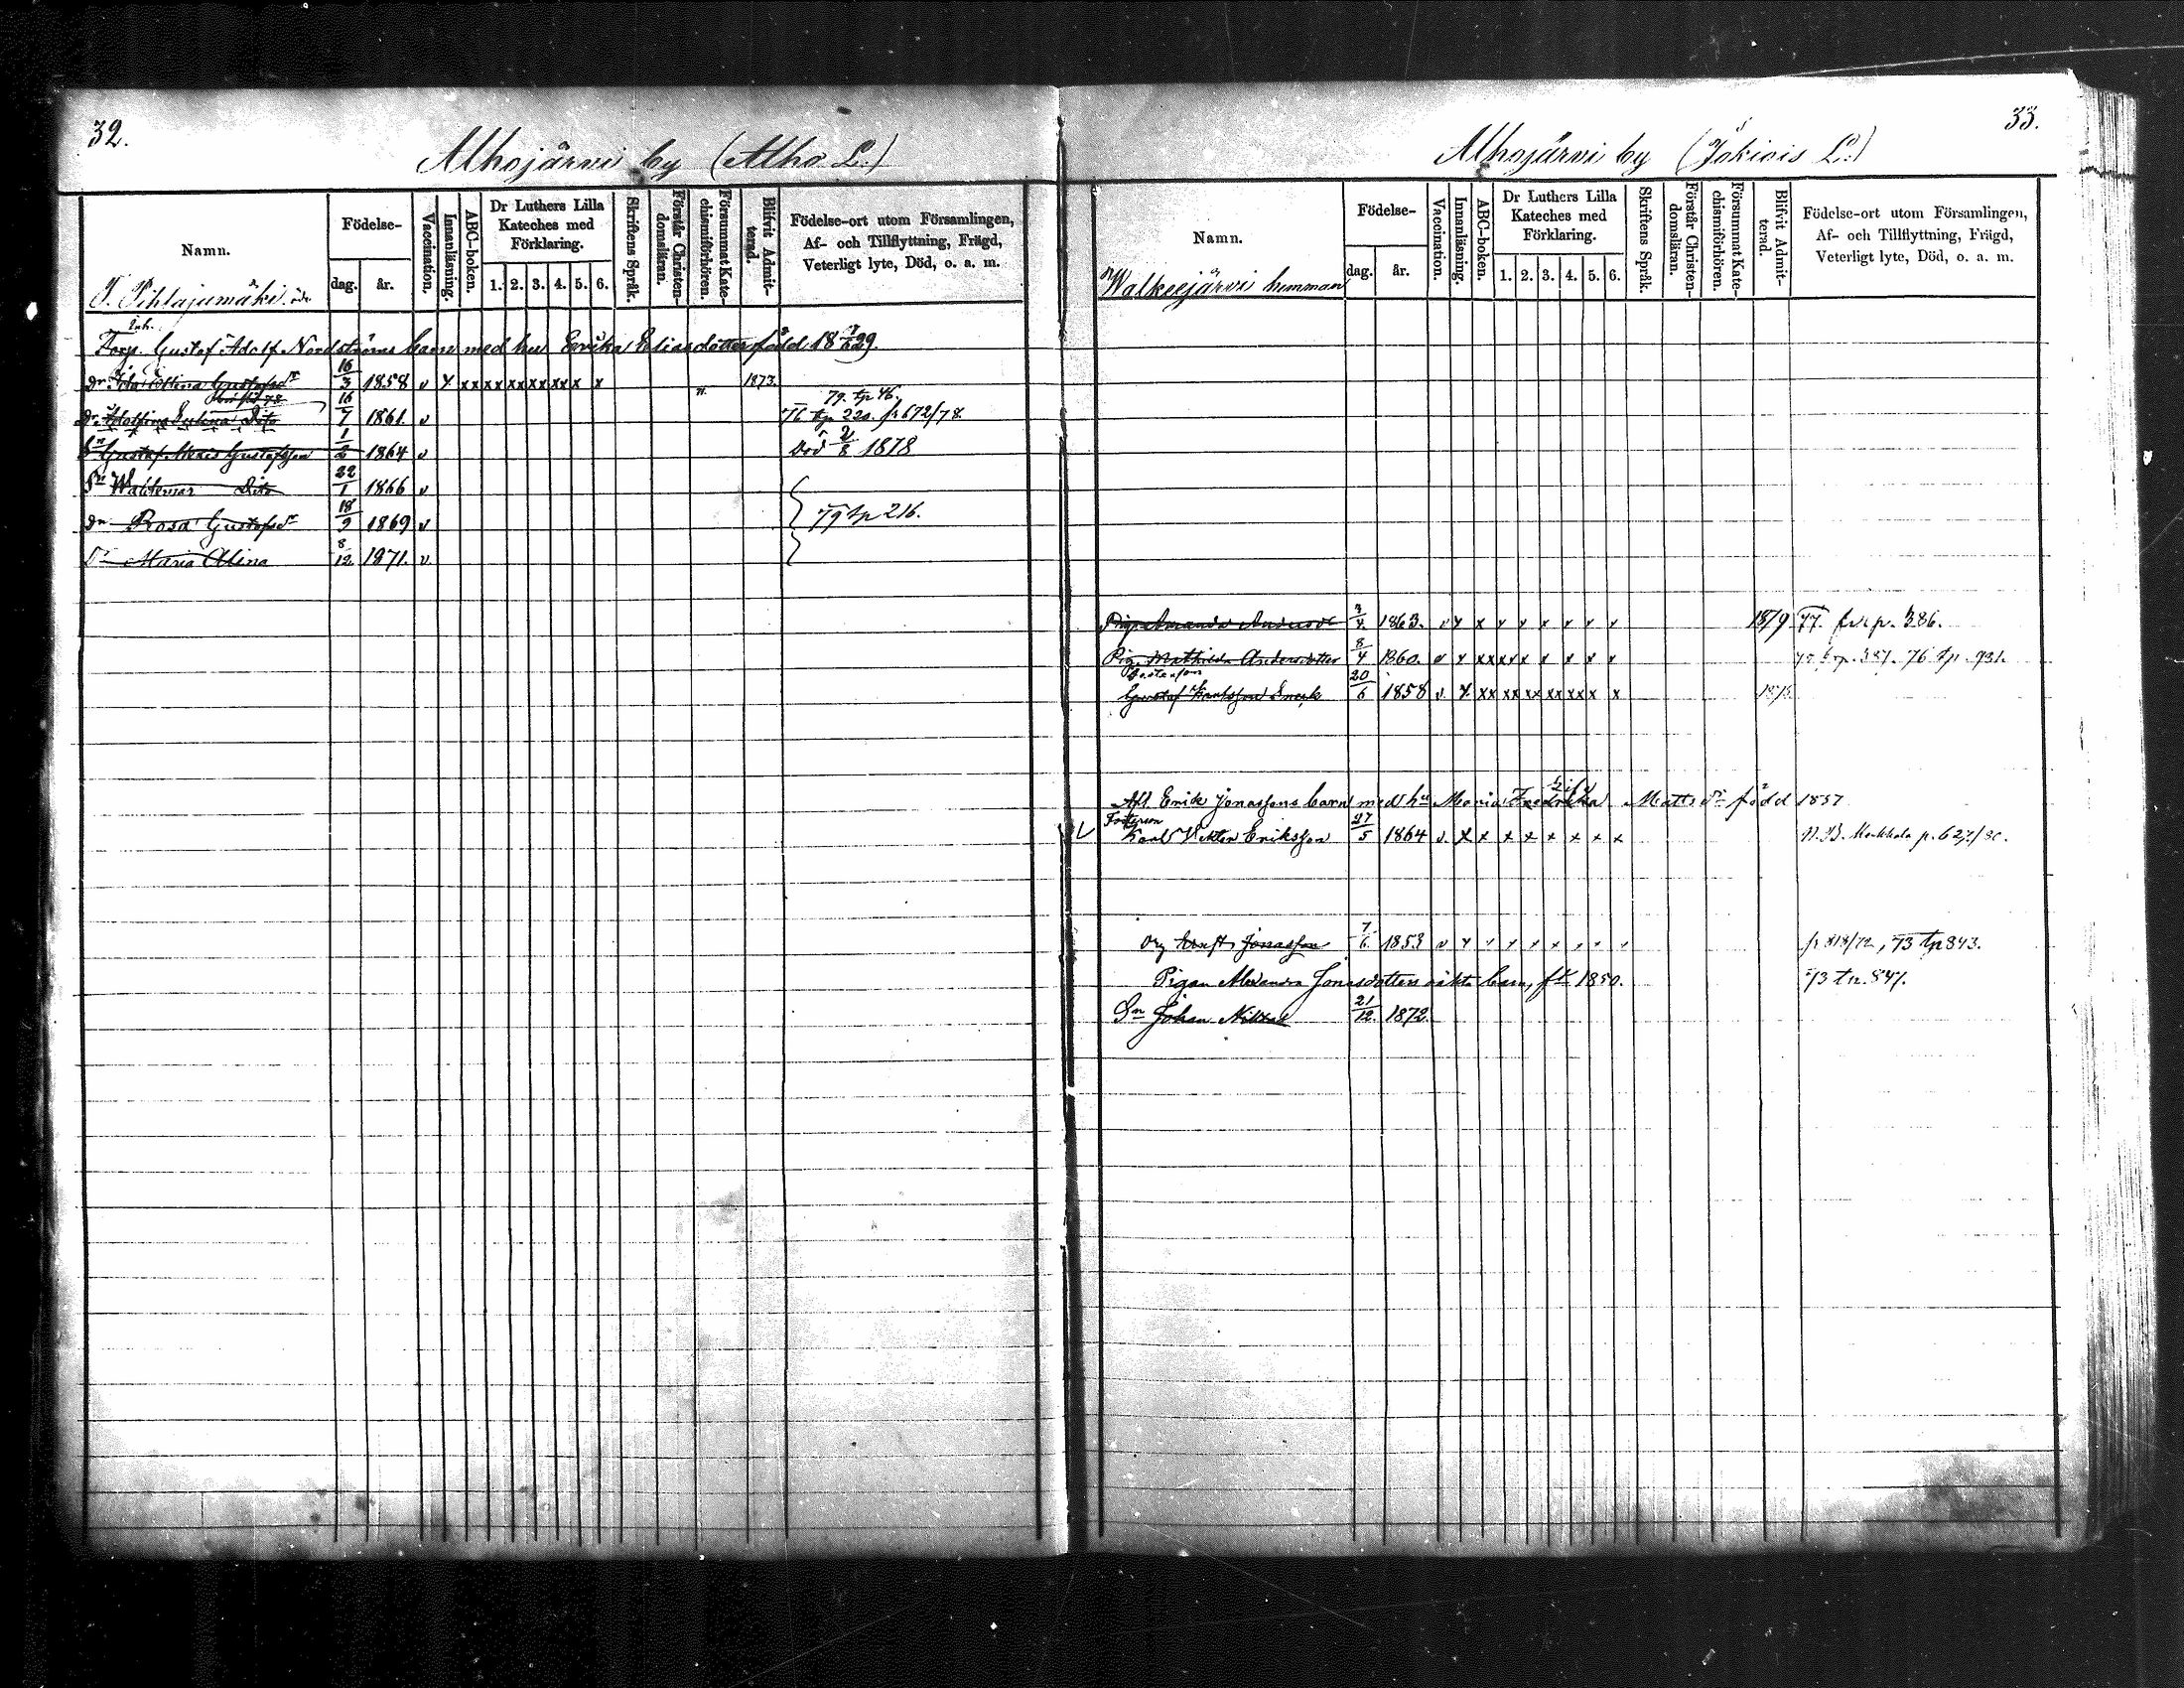 32.
Alhojärvi by (Alho L.)
Namn.
Födelse-
dag.
år.
Vaccination.
Innanläsning.
ABC-boken.
Dr Luthers Lilla
Kateches med
Förklaring.
1. 2. 3. 4. 5. 6.
Skriftens Språk.
Förstår Christen-
domsläran.
Försummat Kate-
chismiförhören.
Blifvit Admit-
terad.
Födelse-ort utom Församlingen,
Af- och Tillflyttning, Frägd,
Veterligt lyte, Död, o. a. m.
T. Pihlajamäki
Inh.
Torp. Gustaf Adolf Nordströms barn med hu Erika Eliasdotter född 18 29
Dr Ida Gustafsdr 16/3 1858 v x x x x x x x x x x x 1873.
79. tp 46.
Dr Adolfina Dito 16/7 1861. v 76 tp 220. fr 672/78.
Sn Gustaf Alexis Gustafsson 1/2 1864 v Död 2/8 1878
Sn Waldemar Dito 22/1 1866 v
Dr Rosa Gustafsdr 18/9 1869 v 79 tp 216.
Dr Maria Alina 8/12 1871. v.
33.
Alhojärvi by (Jokiois L.)
Namn.
Födelse-
dag.
år.
Vaccination.
Innanläsning.
ABC-boken.
Dr Luthers Lilla
Kateches med
Förklaring.
1. 2. 3. 4. 5. 6.
Skriftens Språk.
Förstår Christen-
domsläran.
Försummat Kate-
chismiförhören.
Blifvit Admit-
terad.
Födelse-ort utom Församlingen,
Af- och Tillflyttning, Frägd,
Veterligt lyte, Död, o. a. m.
Walkeejärvi hemman
Pig. Amanda Andersdr 3/4 1863. v x x v v x v v v 1879 77. fr. p. 386.
Pig. Mathilda Andersdotter 8/4 1860. v x x x x x x x x x 76 tp. 931.
Gustafsson
Gustaf 20/6 1858 v. x x x x x x x x x x x x
Afl. Erik Jonassons barn med hu Maria Fredrika Matts dr född 1837
Fosterson
Karl Viktor Eriksson 27/5 1864 v. x x x x x x x x N.B. p. 627/80.
Drg Ernst Jonasson 7/6 1853 v x v v v x v v v fr 818/72, 73 tp 843.
Pigan Alexandra Jonasdotters oäkta barn, fd 1850. 73 tp. 847.
Sn Johan Niktal 21/12 1872.